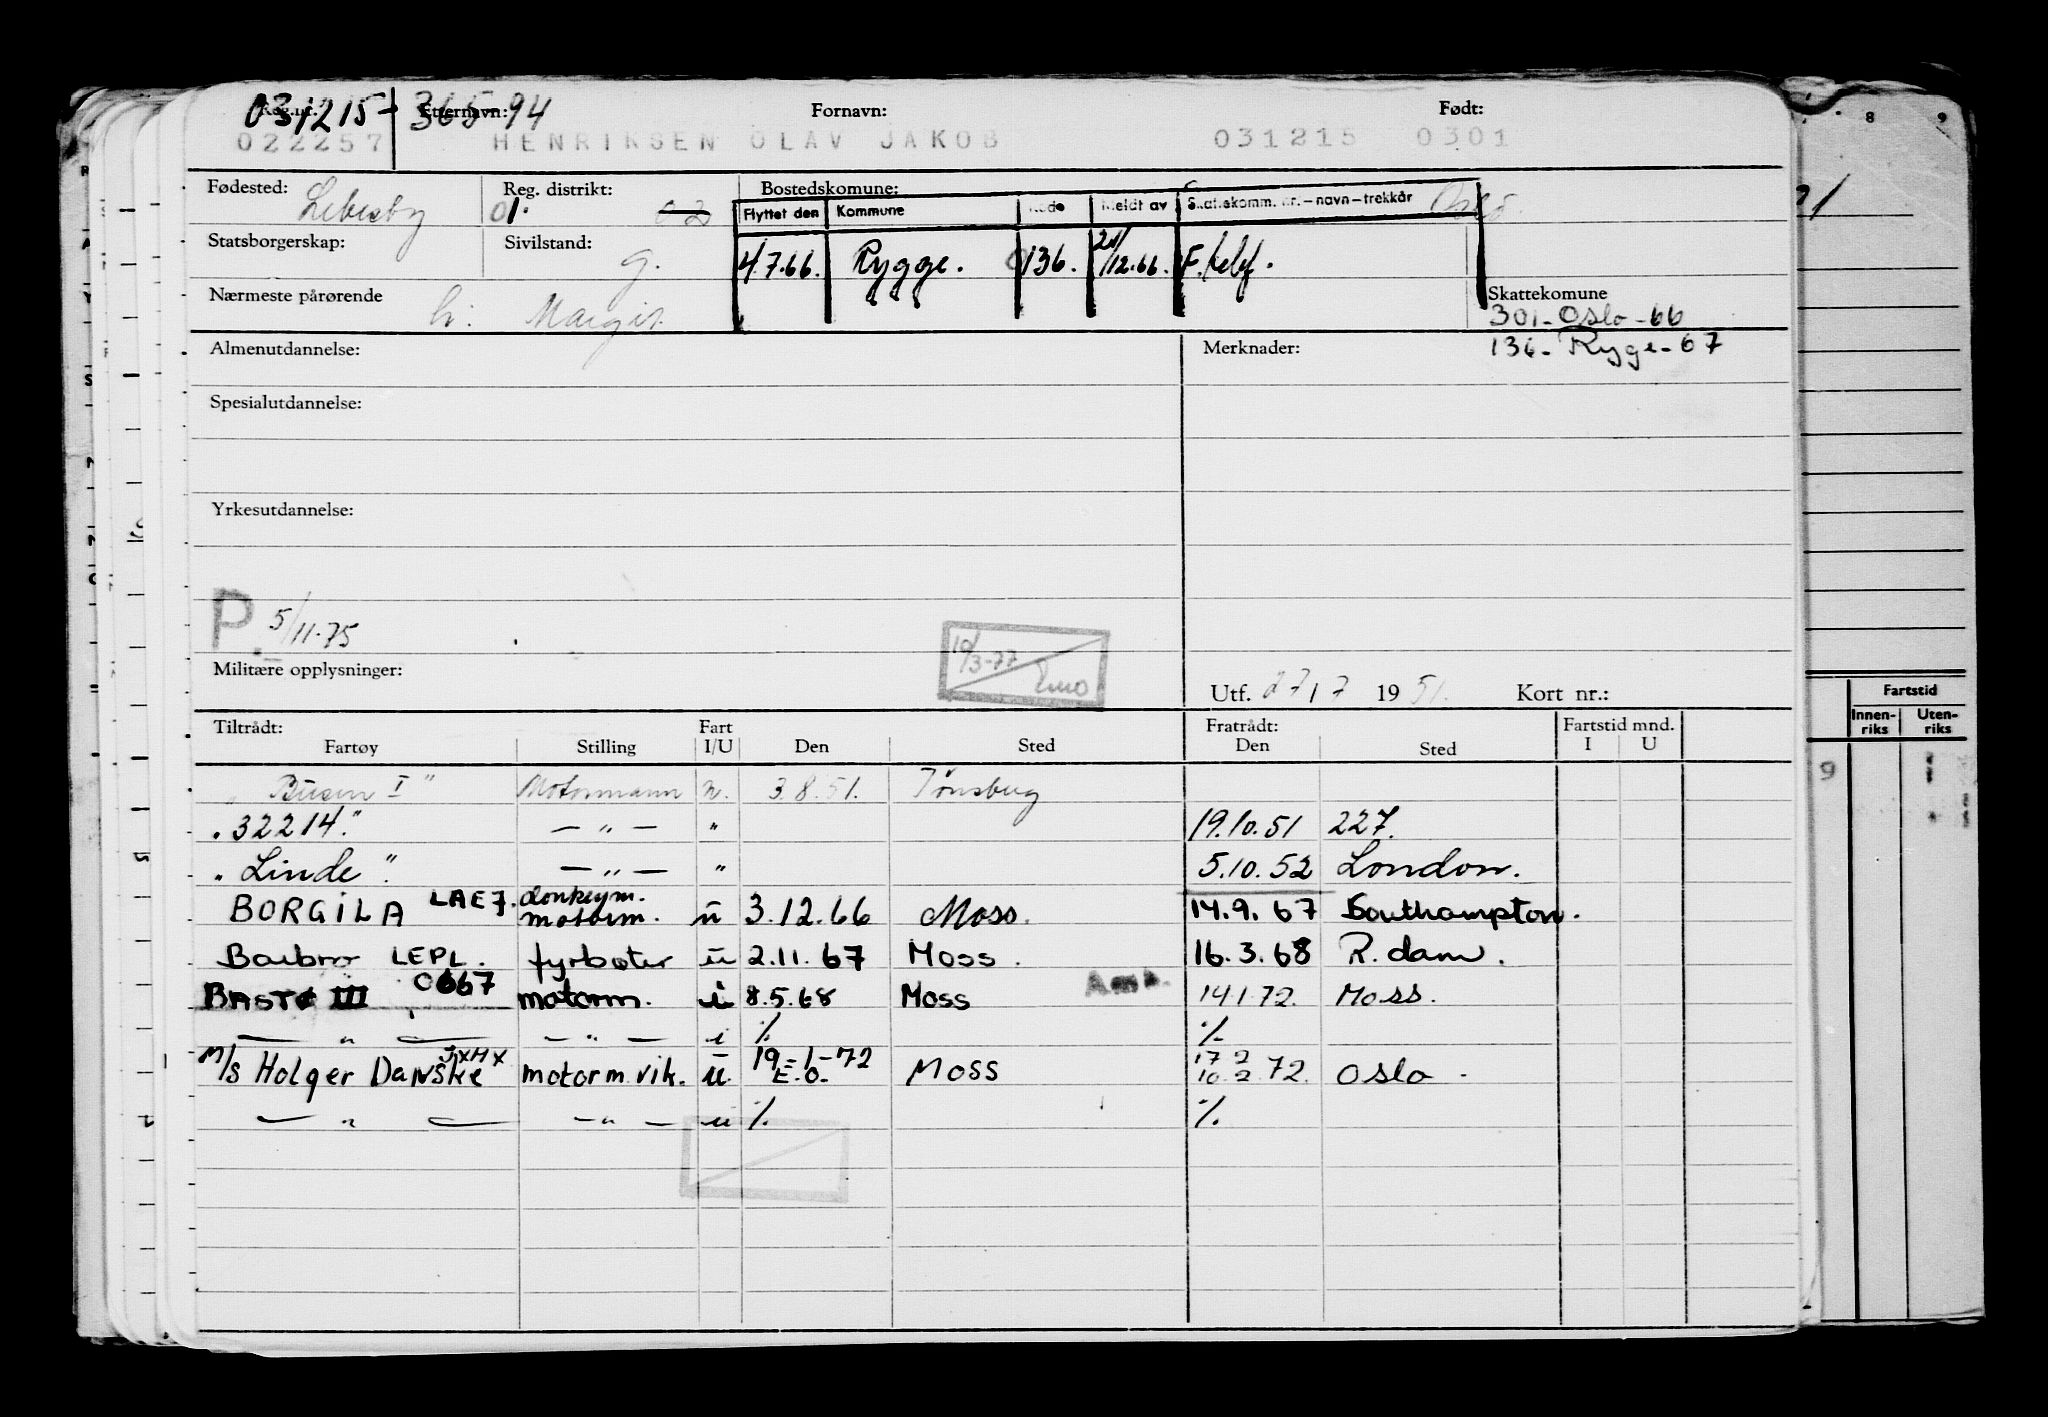 031215-36594
Reg.nr. Etternavn: Fornavn: Født:
022257 HENRIKSEN OLAV JAKOB 031215 0301
Fødested: Lebesby Reg. distrikt: 01. 02 Bostedskomune: Oslo
Flyttet den Kommune Kode Meldt av Skattekomm. nr.-navn-trekkår
Statsborgerskap: Sivilstand: g. 4.7.66. Rygge. 0136. 21/12.66. F.
Nærmeste pårørende h. Margit. Skattekomune
301-Oslo-66
Almenutdannelse: Merknader: 136-Rygge-67
Spesialutdannelse:
Yrkesutdannelse:
P. 5/11-75
Militære opplysninger: 10/3-77
Utf. 27/7 1951. Kort nr.:
Tiltrådt: Fart Fratrådt: Fartstid mnd.
Fartøy Stilling I/U Den Sted Den Sted I U
„Busen I" Motormann u. 3.8.51. Tønsberg
„32214." — " — " 19.10.51 227.
„Linde." — " — " 5.10.52 London.
BORGILA LAE7. donkeym. motorm. u 3.12.66 Moss. 14.9.67 Southampton.
Barbro LEPL. fyrbøter u 2.11.67 Moss. 16.3.68 R.dam.
BASTØ III 0667 motorm. i 8.5.68 Moss Anm. 14.1.72. Moss.
— " — — " — i % %
M/S Holger Danske JXHX motorm.vik. u. 19-1-72 E.O. Moss 17.2 10.2.72. Oslo.
— " — — " — u % %
8 9
Fartstid
Innen-riks Uten-riks
9